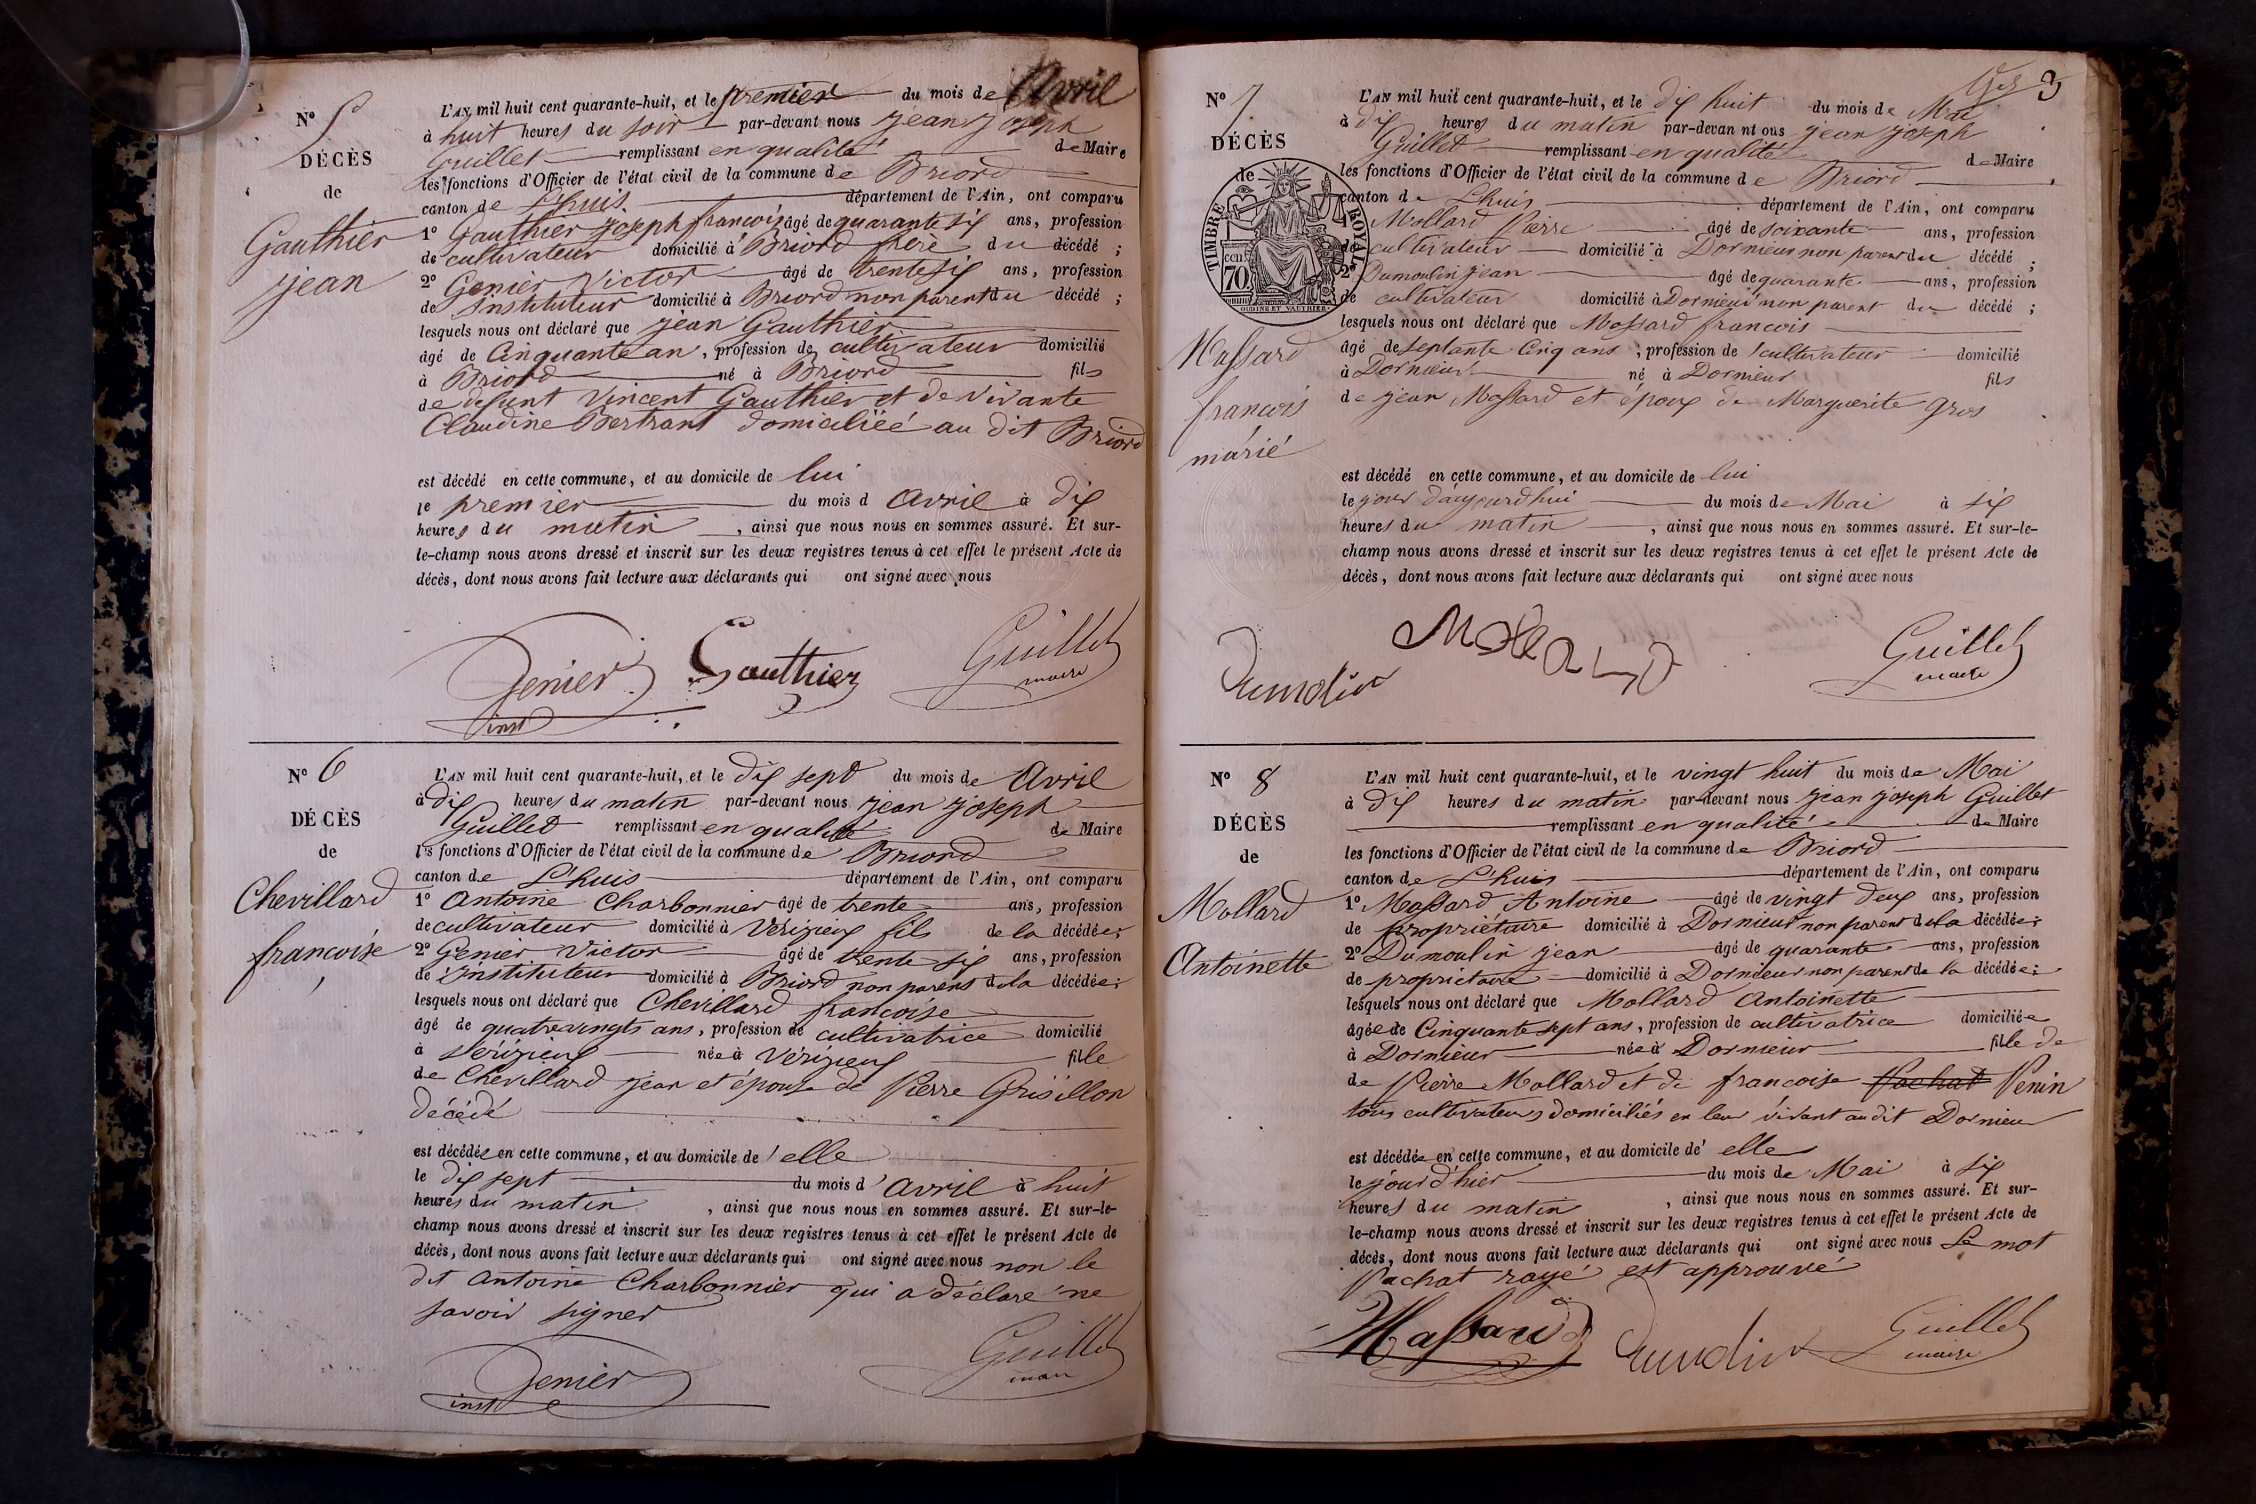 N° 5
DÉCÈS
de
Gauthier
jean
L'AN mil huit cent quarante-huit, et le premier du mois de Avril
à huit heures du soir par-devant nous jean joseph
Guillet remplissant en qualité de Maire
les fonctions d'Officier de l'état civil de la commune de Briord
canton de L'huis département de l'Ain, ont comparu
1° Gauthier joseph françois âgé de quarante six ans, profession
de cultivateur domicilié à Briord frère du décédé ;
2° Genier Victor âgé de trente six ans, profession
de instituteur domicilié à Briord non parent du décédé ;
lesquels nous ont déclaré que jean Gauthier
âgé de Cinquante an, profession de cultivateur domicilié
à Briord né à Briord fils
de defunt Vincent Gauthier et de vivante
Claudine Bertrant domiciliéé au dit Briord
est décédé en cette commune, et au domicile de lui
le premier du mois d avril à dix
heures du matin, ainsi que nous nous en sommes assuré. Et sur-
le-champ nous avons dressé et inscrit sur les deux registres tenus à cet effet le présent Acte de
décès, dont nous avons fait lecture aux déclarants qui ont signé avec nous
Genier Gauthier Guillet
inst maire
N° 6
DÉCÈS
de
Chevillard
francoise
L'AN mil huit cent quarante-huit, et le dix sept du mois de Avril
à dix heures du matin par-devant nous jean joseph
Guillet remplissant en qualité de Maire
les fonctions d'Officier de l'état civil de la commune de Briord
canton de L'huis département de l'Ain, ont comparu
1° Antoine Charbonnier âgé de trente ans, profession
de cultivateur domicilié à Vérizieux fils de la décédée ;
2° Genier Victor âgé de trente six ans, profession
de instituteur domicilié à Briord non parens de la décédée ;
lesquels nous ont déclaré que Chevillard francoise
âgé de quatrevingts ans, profession de cultivatrice domicilié
à Vérizieux née à Vérizieux fille
de Chevillard jean et épouse de Pierre Grisillon
décédé
est décédée en cette commune, et au domicile de elle
le dix sept du mois d'avril à huit
heures du matin, ainsi que nous nous en sommes assuré. Et sur-le-
champ nous avons dressé et inscrit sur les deux registres tenus à cet effet le présent Acte de
décès, dont nous avons fait lecture aux déclarants qui ont signé avec nous non le
dit Antoine Charbonnier qui a déclaré ne
savoir signer
Genier Guillet
inst maire
3
N° 7
DÉCÈS
de
TIMBRE ROYAL
70
OUDINE ET VAUTHIER
Massard
francois
márié
L'AN mil huit cent quarante-huit, et le dix huit du mois de Mai
à dix heures du matin par-devan nt ous jean joseph
Guillet remplissant en qualité de Maire
les fonctions d'Officier de l'état civil de la commune de Briord
canton de L'huis département de l'Ain, ont comparu
1° Mollard Pierre âgé de soixante ans, profession
de cultivateur domicilié à Dornieur non parent du décédé ;
2° Dumoulin jean âgé de quarante ans, profession
de cultivateur domicilié à Dornieur non parent du décédé ;
lesquels nous ont déclaré que Massard francois
âgé de septante Cinq ans, profession de cultivateur domicilié
à Dornieur né à Dornieur fils
de jean Massard et époux de Marguerite Gros
est décédé en cette commune, et au domicile de lui
le jour d'aujourdhui du mois de Mai à six
heures du matin, ainsi que nous nous en sommes assuré. Et sur-le-
champ nous avons dressé et inscrit sur les deux registres tenus à cet effet le présent Acte de
décès, dont nous avons fait lecture aux déclarants qui ont signé avec nous
Dumolin Mollard Guillet
maire
N° 8
DÉCÈS
de
Mollard
Antoinette
L'AN mil huit cent quarante-huit, et le vingt huit du mois de Mai
à dix heures du matin par-devant nous jean joseph Guillet
remplissant en qualité de Maire
les fonctions d'Officier de l'état civil de la commune de Briord
canton de L'huis département de l'Ain, ont comparu
1° Massard Antoine âgé de vingt deux ans, profession
de propriétaire domicilié à Dornieur non parent de la décédée ;
2° Dumoulin jean âgé de quarante ans, profession
de propriétaire domicilié à Dornieur non parent de la décédée ;
lesquels nous ont déclaré que Mollard Antoinette
âgée de Cinquante sept ans, profession de cultivatrice domiciliée
à Dornieur née à Dornieur fille de
de Pierre Mollard et de francoise Pachat Penin
tous cultivateurs domiciliés en leur vivant au dit Dornieur
est décédée en cette commune, et au domicile de elle
le jour d'hier du mois de Mai à six
heures du matin, ainsi que nous nous en sommes assuré. Et sur-
le-champ nous avons dressé et inscrit sur les deux registres tenus à cet effet le présent Acte de
décès, dont nous avons fait lecture aux déclarants qui ont signé avec nous Le mot
Pachat rayé est approuvé
Massard Dumolin Guillet
maire